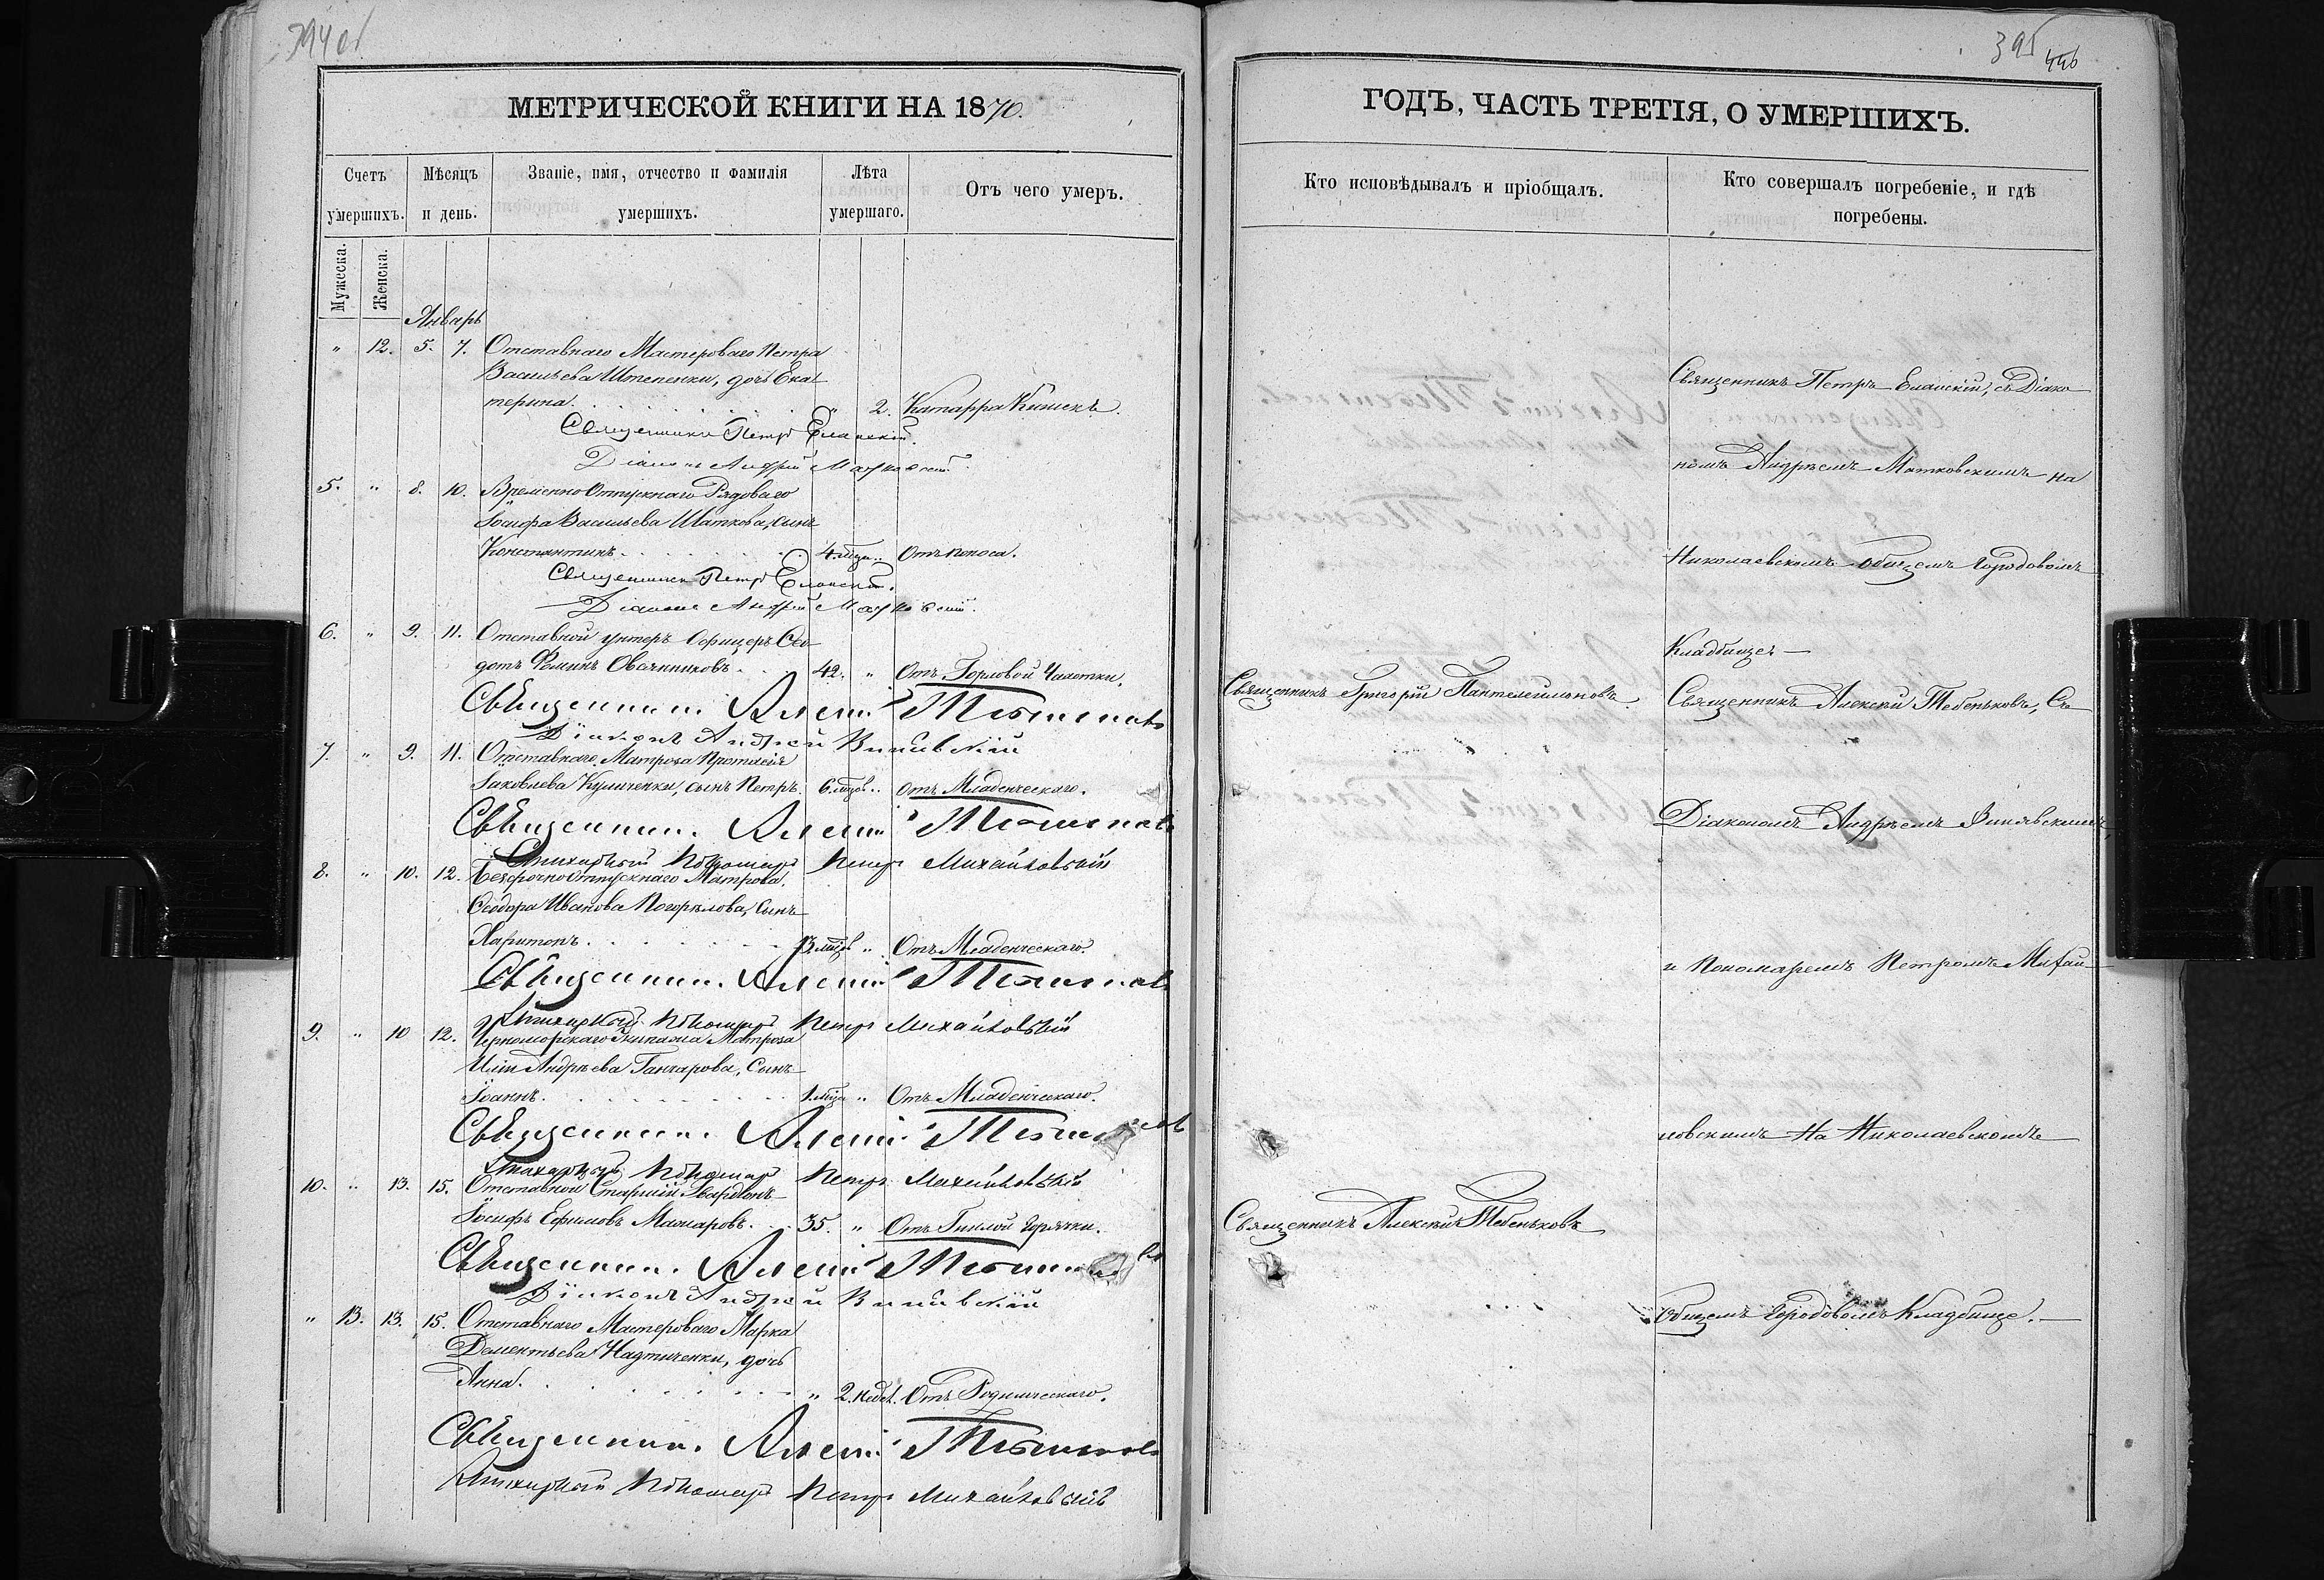 394 об
МЕТРИЧЕСКОЙ КНИГИ НА 1870.
Счетъ умершихъ.
Мѣсяцъ и день.
Званіе, имя, отчество и фамилія умершихъ.
Лѣта умершаго.
Отъ чего умеръ.
Мужеска.
Женска.
Январь
" 12. 5. 7. Отставнаго Мастероваго Петра
Васильева Штепенки, дочь Ека
терина. " 2. Катарра Кишекъ.
Священникъ Петръ Еланскій.
Діаконъ Андрей Матковскій
5. " 8. 10. Временно Отпускнаго Рядоваго
Іосифа Васильева Шаткова, сынъ
Константинъ. 4. мѣц. " Отъ поноса.
Священникъ Петръ Еланскій.
Діаконъ Андрей Матковскій.
6. " 9. 11. Отставной унтеръ Офицеръ Ѳео
дотъ Ѳоминъ Овчинниковъ. 42. " Отъ Горловой Чахотки.
Священникъ Алексій Тебеньковъ
Діаконъ Андрей Винявскій
7. " 9. 11. Отставнаго Матроса Протасія
Іаковлева Куличенки, сынъ Петръ. 6. мѣцов. " отъ Младенческаго.
Священникъ Алексій Тебеньковъ
Стихарный Пономарь Петръ Михайловскій
8. " 10. 12. Безсрочно отпускнаго Матроса
Ѳеодора Иванова Погорѣлова, Сынъ
Харитонъ. мѣцов " Отъ Младенческаго.
Священникъ Алексій Тебеньковъ
Стихарный Пономарь Петръ Михайловскій
9. " 10 12. Черноморскаго Экипажа Матроса
Иліи Андрѣева Ганчарова, Сынъ
Іоаннъ. 1. мѣц " Отъ Младенческаго.
Священникъ Алексій Тебеньковъ
Стихарный Пономарь Петръ Михайловскій
10. " 13. 15. Отставной Старшій
Іосифъ Ефимовъ Макаровъ. 35. " Отъ Гнилой горячки.
Священникъ Алексій Тебеньковъ
Діаконъ Андрей Винявскій
" 13. 13. 15. Отставнаго Мастероваго Марка
Дементьева Надтиченки, дочь
Анна. " 2. недѣл. Отъ Родимическаго.
Священникъ Алексій Тебеньковъ
Стихарный Пономарь Петръ Михайловскій
395
446
ГОДЪ, ЧАСТЬ ТРЕТІЯ, О УМЕРШИХЪ.
Кто исповѣдывалъ и пріобщалъ.
Кто совершалъ погребеніе, и гдѣ погребены.
Священникъ Петръ Еланскій, съ Діако
номъ Андрѣемъ Матковскимъ на
Николаевскомъ общемъ городовомъ
Кладбищѣ —
Священникъ Григорій Пантелеимоновъ.
Священникъ Алексій Тебеньковъ, Съ
Діакономъ Андрѣемъ Винявскимъ,
и Пономаремъ Петромъ Михай
ловскимъ На Николаевскомъ
Священникъ Алексій Тебеньковъ
общемъ городовомъ Кладбище. —